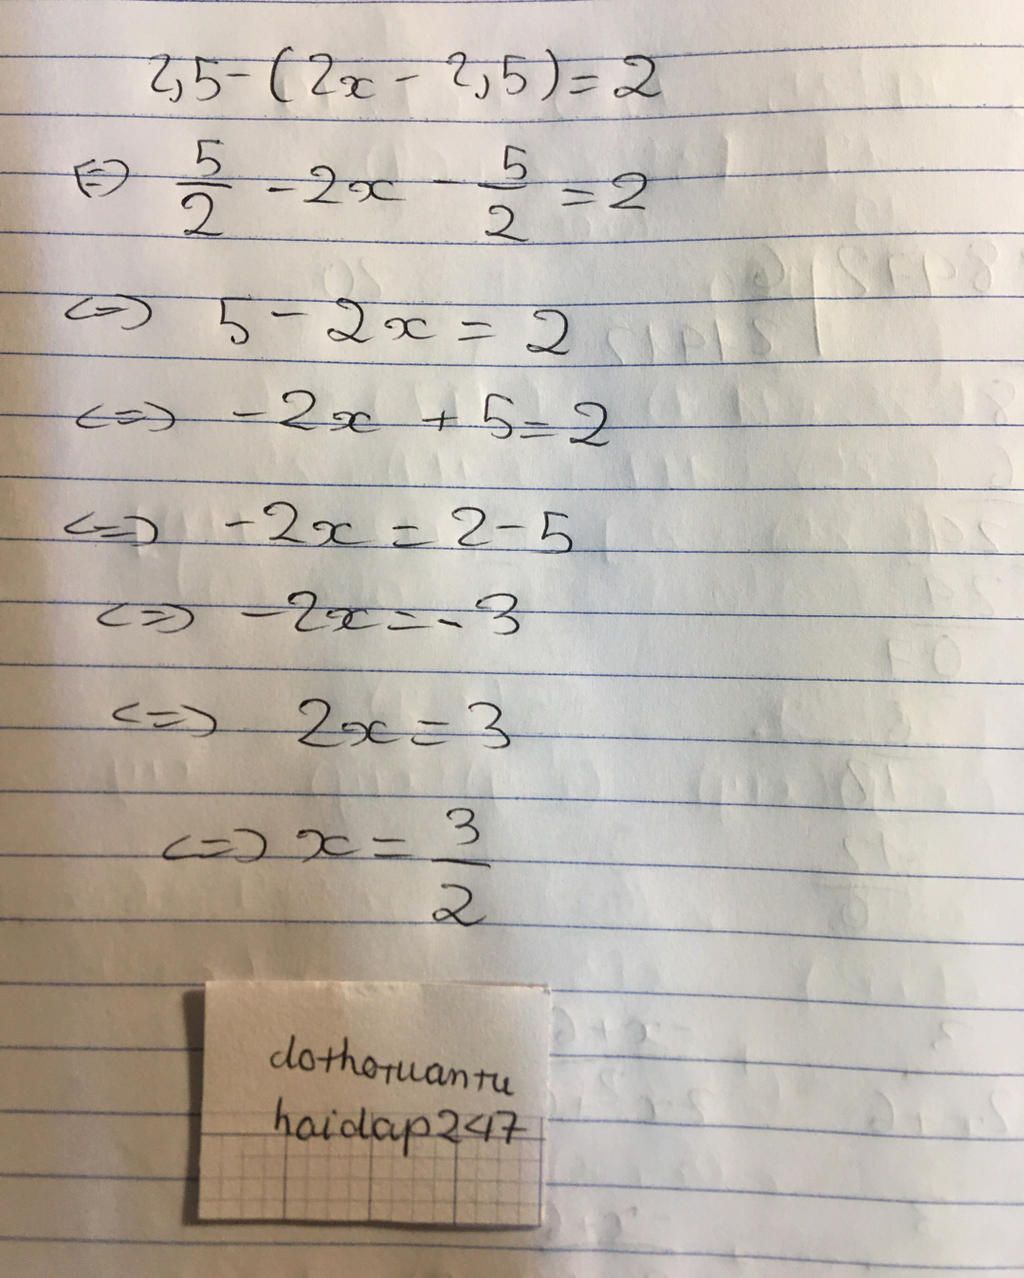 2,5-(2x - 2,5)=2
<=> 5/2 -2x - 5/2 =2
<=> 5-2x=2
<=> -2x +5=2
<=> -2x=2-5
<=> -2x=-3
<=> 2x=3
<=> x=3/2
dothotuantu
haidap247